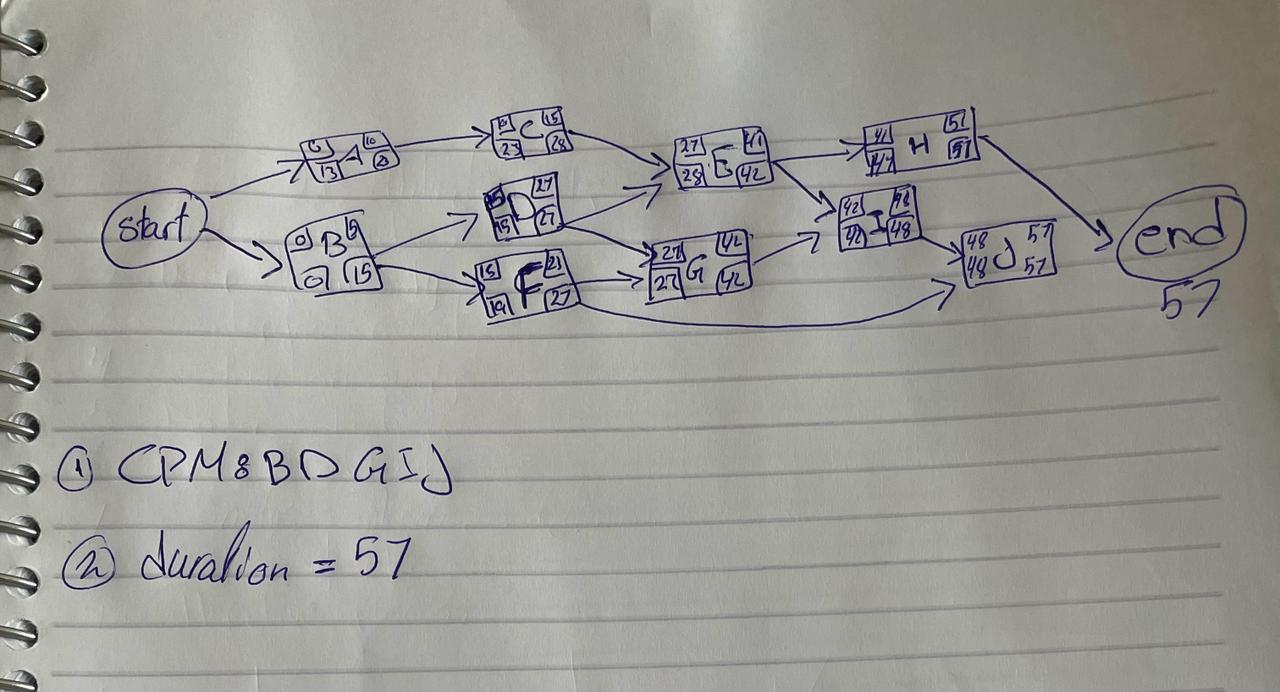 start
0 10
A
13 23
10 15
C
23 28
0 15
B
0 15
15 27
D
15 27
15 21
F
27
27 41
E
28 42
27 42
G
27 42
41 51
H
57
42 48
I
42 48
48 57
J
48 57
end
57
① CPM: BDGIJ
② duration = 57